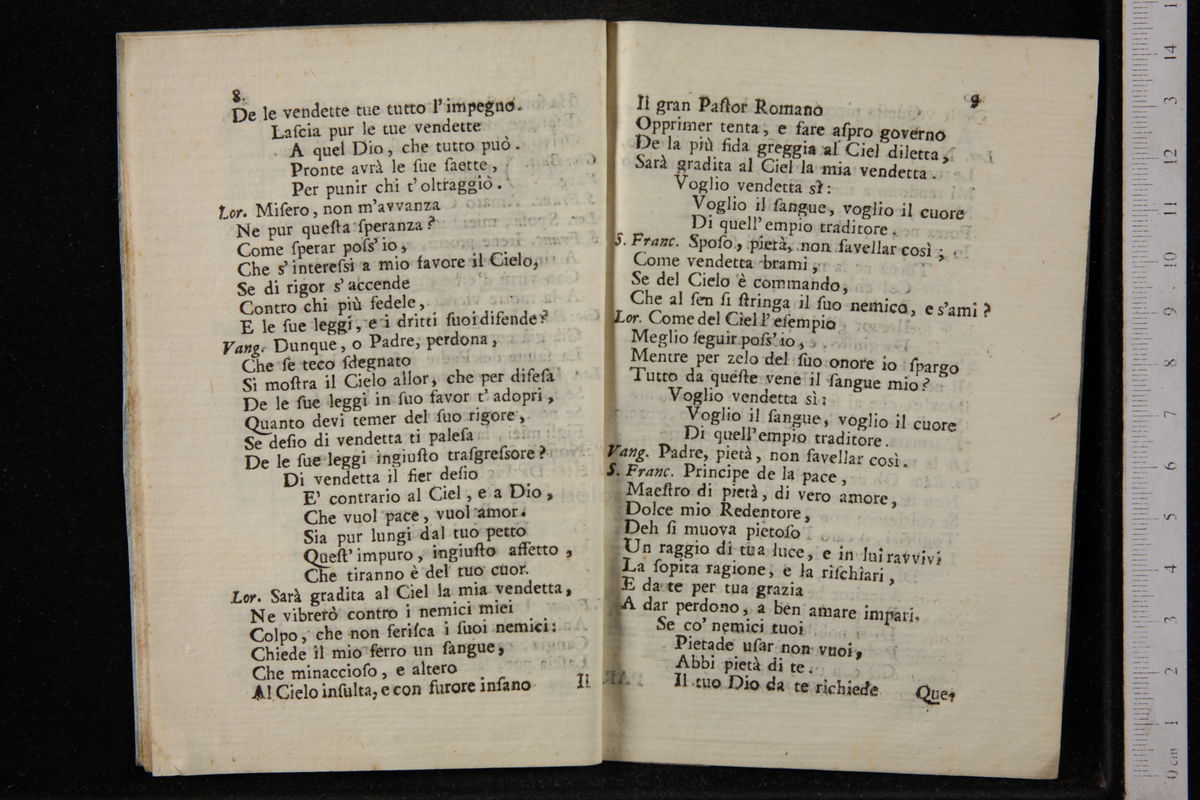 8.
De le vendette tue tutto l'impegno.
Laſcia pur le tue vendette
A quel Dio, che tutto può.
Pronte avrà le ſue ſaette,
Per punir chi t'oltraggiò.
Lor. Miſero, non m'avvanza
Ne pur queſta ſperanza?
Come ſperar poſs'io,
Che s'intereſsi a mio favore il Cielo,
Se di rigor s'accende
Contro chi più fedele,
E le ſue leggi, e i dritti ſuoi difende?
Vang. Dunque, o Padre, perdona,
Che ſe teco ſdegnato
Si moſtra il Cielo allor, che per difeſa
De le ſue leggi in ſuo favor t'adopri,
Quanto devi temer del ſuo rigore,
Se deſio di vendetta ti paleſa
De le ſue leggi ingiuſto traſgreſsore?
Di vendetta il fier deſio
E' contrario al Ciel, e a Dio,
Che vuol pace, vuol amor.
Sia pur lungi dal tuo petto
Queſt'impuro, ingiuſto affetto,
Che tiranno è del tuo cuor.
Lor. Sarà gradita al Ciel la mia vendetta,
Ne vibrerò contro i nemici miei
Colpo, che non feriſca i ſuoi nemici:
Chiede il mio ferro un ſangue,
Che minaccioſo, e altero
Al Cielo inſulta, e con furore inſano
Il
9
Il gran Paſtor Romano
Opprimer tenta, e fare aſpro governo
De la più fida greggia al Ciel diletta,
Sarà gradita al Ciel la mia vendetta.
Voglio vendetta sì:
Voglio il ſangue, voglio il cuore
Di quell'empio traditore.
S. Franc. Spoſo, pietà, non favellar così;
Come vendetta brami,
Se del Cielo è commando,
Che al ſen ſi ſtringa il ſuo nemico, e s'ami?
Lor. Come del Ciel l'eſempio
Meglio ſeguir poſs'io,
Mentre per zelo del ſuo onore io ſpargo
Tutto da queſte vene il ſangue mio?
Voglio vendetta sì:
Voglio il ſangue, voglio il cuore
Di quell'empio traditore.
Vang. Padre, pietà, non favellar così.
S. Franc. Principe de la pace,
Maeſtro di pietà, di vero amore,
Dolce mio Redentore,
Deh ſi muova pietoſo
Un raggio di tua luce, e in lui ravvivi
La ſopita ragione, e la riſchiari,
E da te per tua grazia
A dar perdono, a ben amare impari.
Se co' nemici tuoi
Pietade uſar non vuoi,
Abbi pietà di te.
Il tuo Dio da te richiede
Que-